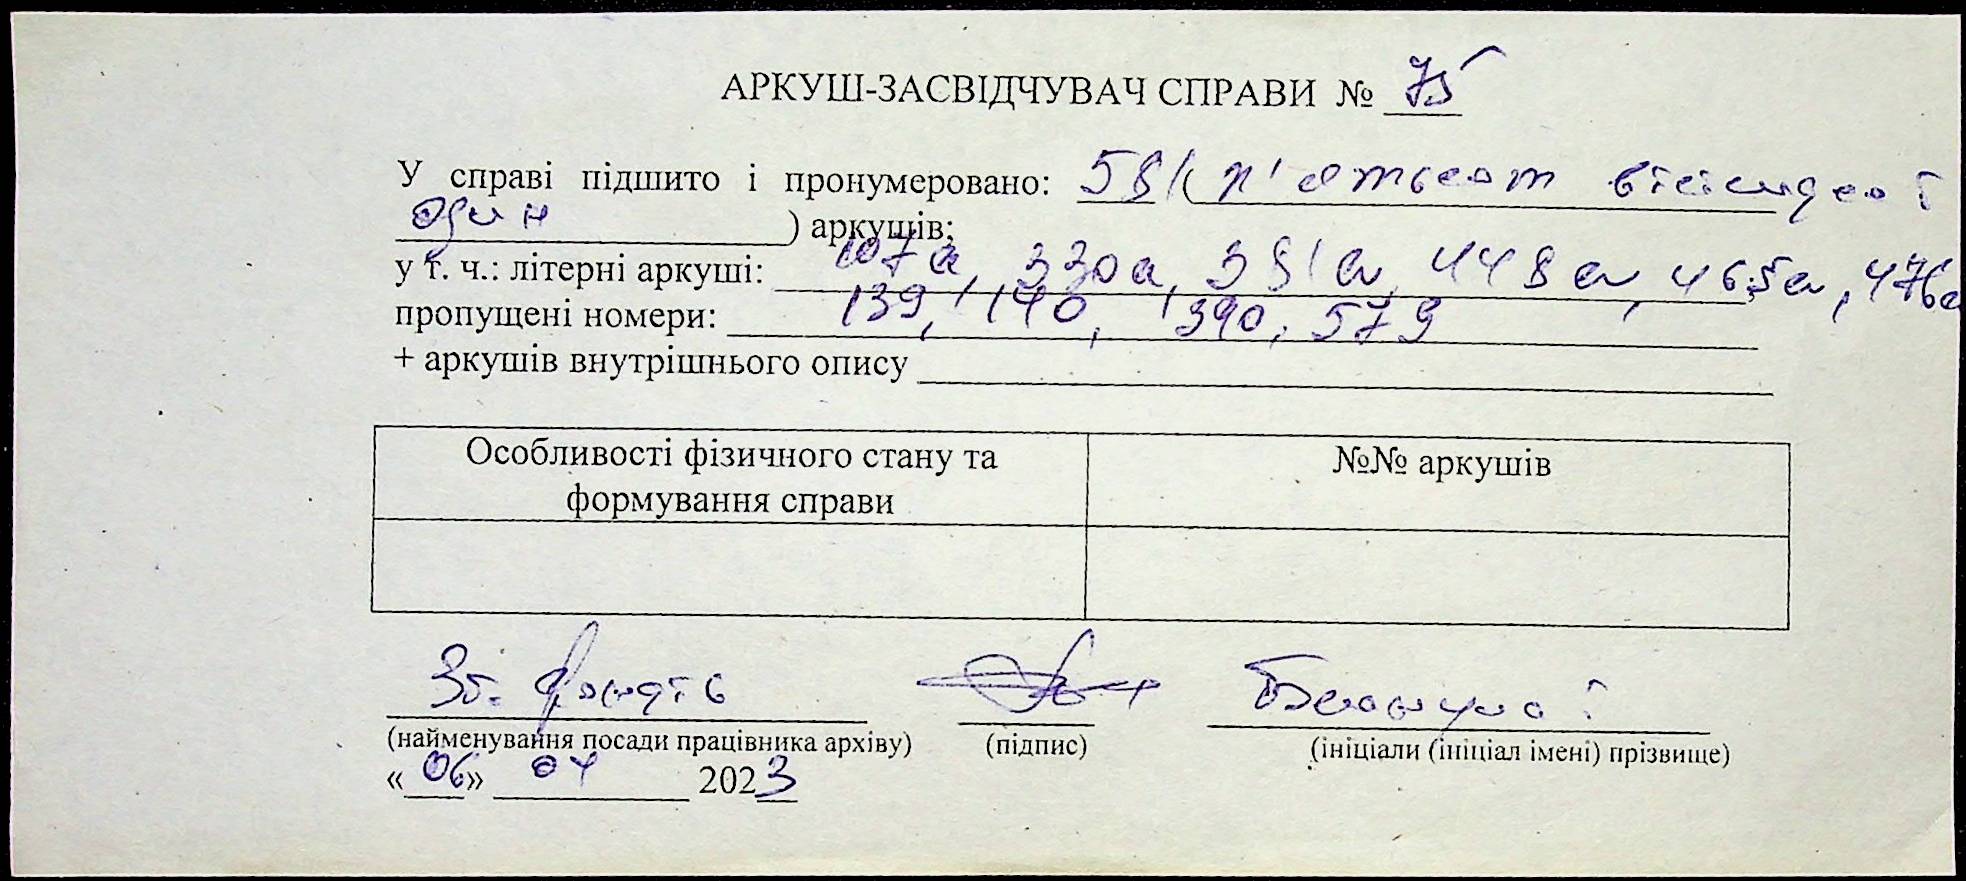 АРКУШ-ЗАСВІДЧУВАЧ СПРАВИ № 75
У справі підшито і пронумеровано: 581 (п'ятсот вісімдесят
один ) аркушів;
у т. ч.: літерні аркуші: 107а, 330а, 381а, 448а, 465а, 476а
пропущені номери: 139, 140, 390, 579
+ аркушів внутрішнього опису
Особливості фізичного стану та
формування справи
№№ аркушів
Зб. фондів
(найменування посади працівника архіву) (підпис) (ініціали (ініціал імені) прізвище)
«06» 04 2023